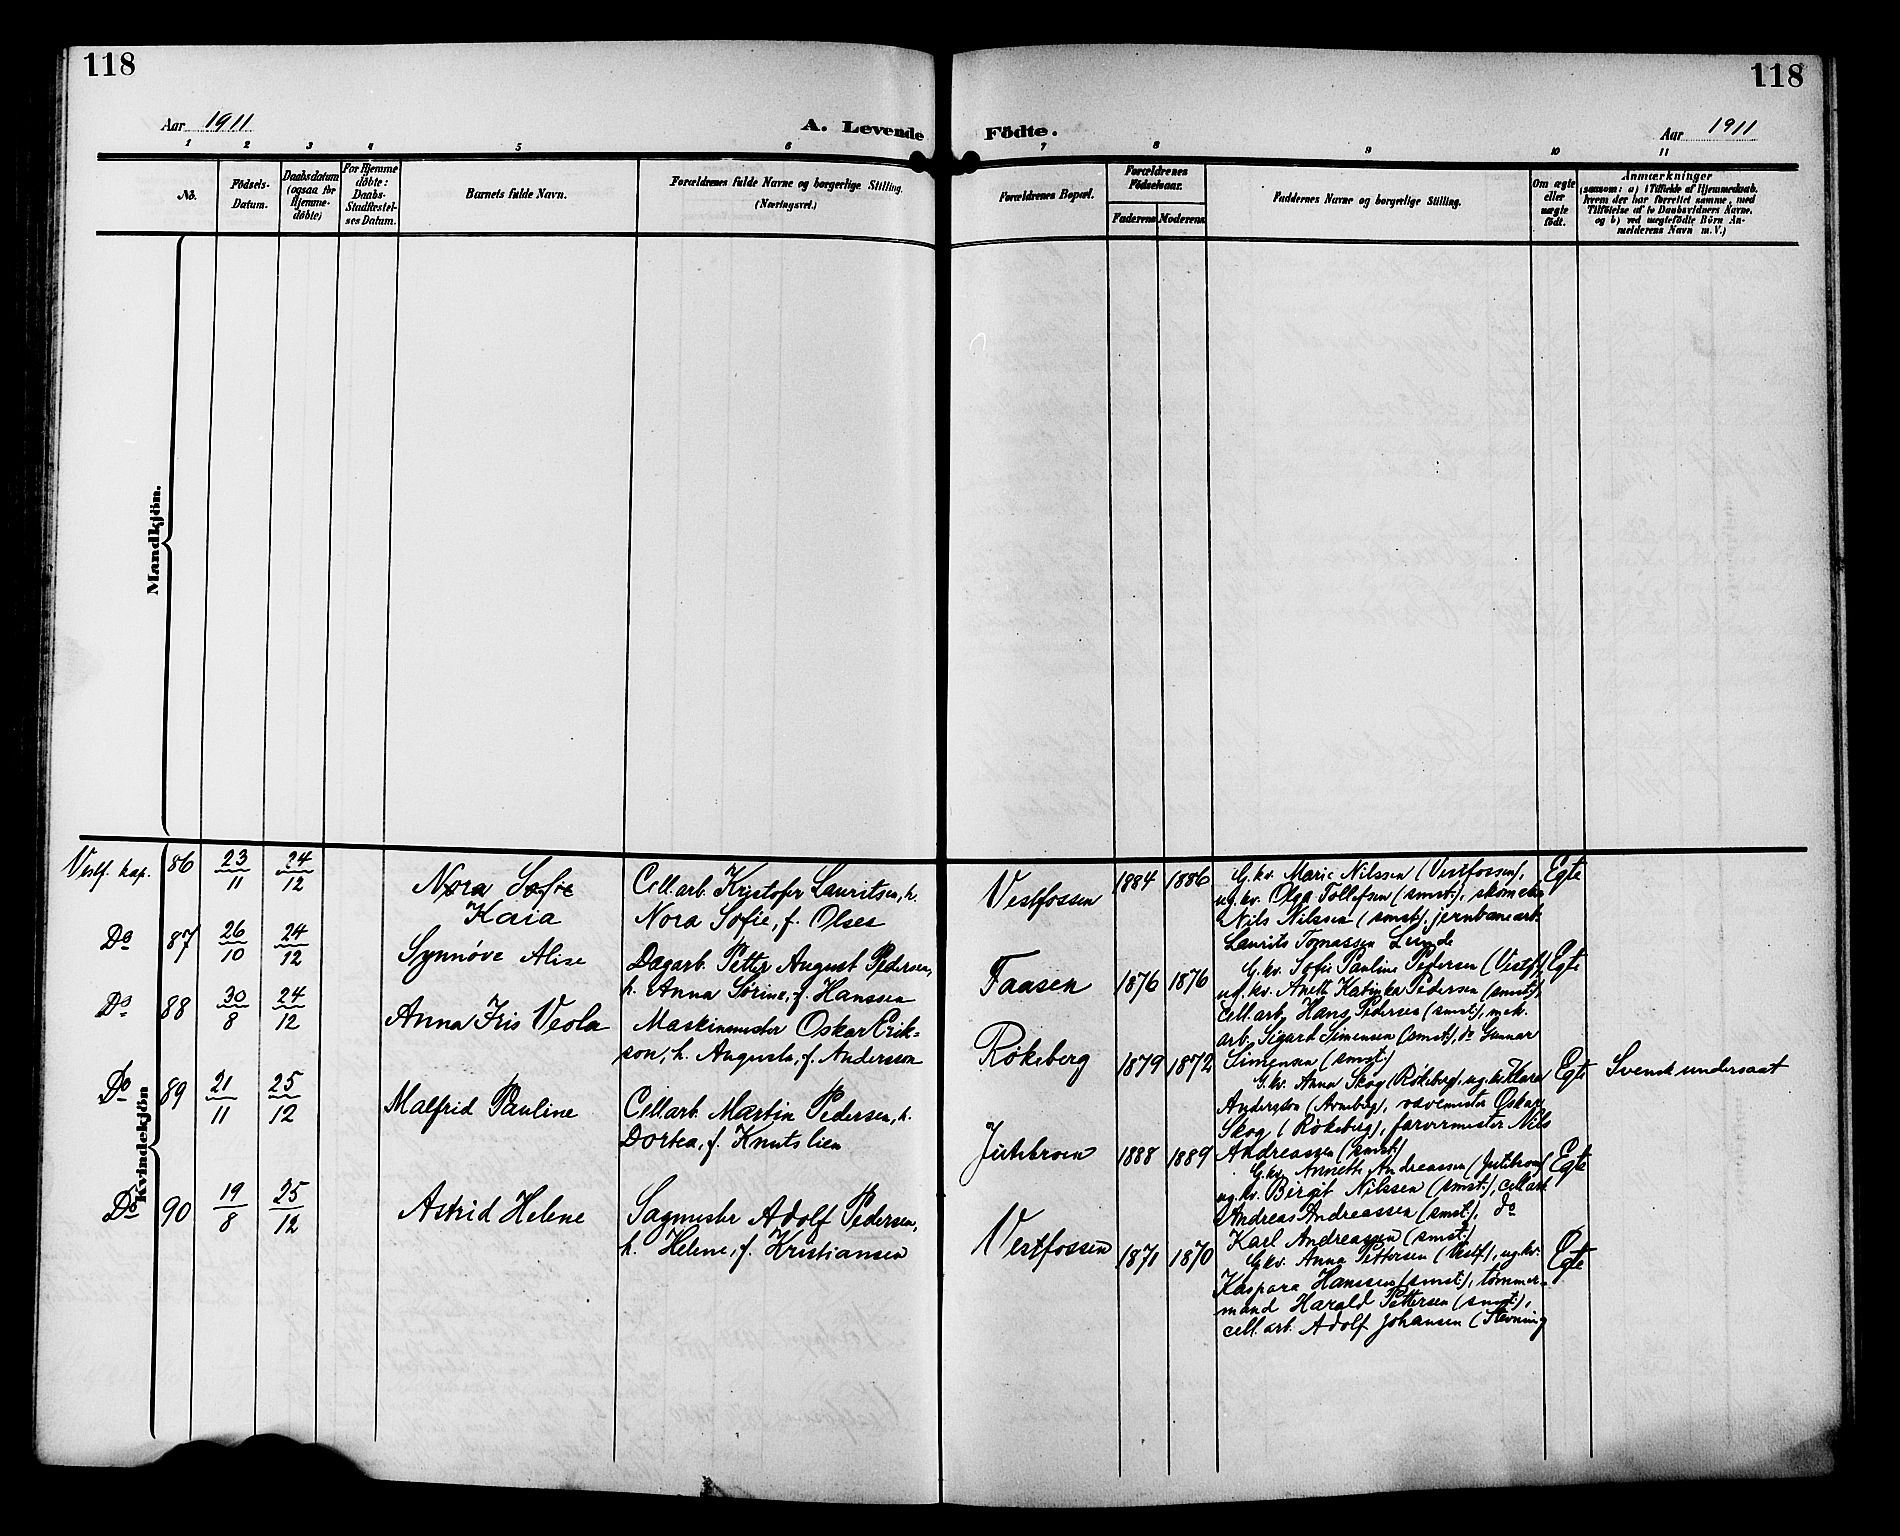 118
118
Aar 1911
A. Levende Födte.
Aar 1911
1 2 3 4 5 6 7 8 9 10 11
No.
Födsels-
Datum.
Daabsdatum
(ogsaa for
Hjemme-
döbte)
For Hjemme
döbte:
Daabs-
Stadfæstel-
ses Datum.
Barnets fulde Navn.
Forældrenes fulde Navne og borgerlige Stilling.
(Næringsvei.)
Forældrenes Bopæl.
Forældrenes
Födselsaar.
Faderens Moderens
Faddernes Navne og borgerlige Stilling.
Om ægte
eller
uægte
født.
Anmærkninger
(saasom: a) i Tilfælde af Hjemmedaab.
hvem der har forrettet samme, med
Tilföielse af to Daabsvidners Navne.
og b) ved uegtefödte Börn An-
melderens Navn m.V.)
Mandkjön.
Kvindekjön
Vestf. kap. 86 23/11 24/12
Nora Sofie
Kaia
Cell.arb. Kristofer Lauritsen, h.
Nora Sofie, f. Olsen
Vestfossen 1884 1886
G.kv. Marie Nilssen (Vestfossen),
ug.kv. Olga Tollefsen (smst.), skom.
Nils Nilssen (smst), jernbanearb.
Laurits Tomassen Lunde
Egte
Do 87 26/10 24/12
Synnøve Alise
Dagarb. Petter August Pedersen,
h. Anna Sørine, f. Hanssen
Faasen 1876 1876
G.kv. Sofie Pauline Pedersen (Vestf.),
ug.kv. Aneth Katinka Pedersen (smst),
cell.arb. Hans Pedersen (smst), mek.
arb. Sigard Simensen (smst), do Gunnar
Simensen (smst.)
Egte
Do 88 30/8 24/12
Anna Iris Veola
Maskinmester Oskar Erik-
son, h. Augusta, f. Andersson
Røkeberg 1879 1872
G.kv. Anna Skog (Røkeberg), ug.kv. Klara
Andersson (Arneberg), vævemester Oskar
Skog (Røkeberg), farvermester Nils
Andreassen (smst)
Egte
Svensk undersaat
Do 89 21/11 25/12
Malfrid Pauline
Cell.arb. Martin Pedersen, h.
Dortea, f. Knutslien
Jutebroen 1888 1889
G.kv. Annette Andreassen (Jutebroen)
ug.kv. Birgit Nilssen (smst.), cell.arb.
Andreas Andreassen (smst), do
Karl Andreassen (smst.)
Egte
Do 90 19/8 25/12
Astrid Helene
Sagmester Adolf Pedersen,
h. Helene, f. Kristiansen
Vestfossen 1871 1870
G.kv. Anna Pettersen (Vestf.), ug.kv.
Kaspara Hanssen (smst.), tømmer-
mand Harald Pettersen (smst.),
cell.arb. Adolf Johansen (Stevning
Egte